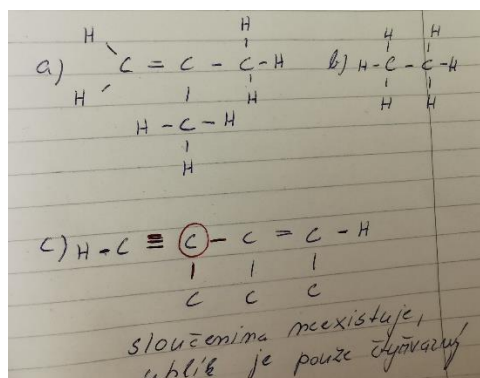 H H H H
a) C = C - C - H b) H - C - C - H
H H H H
H - C - H
H
c) H - C ≡ C - C = C - H
C C C
sloučenina neexistuje,
uhlík je pouze čtyřvazný